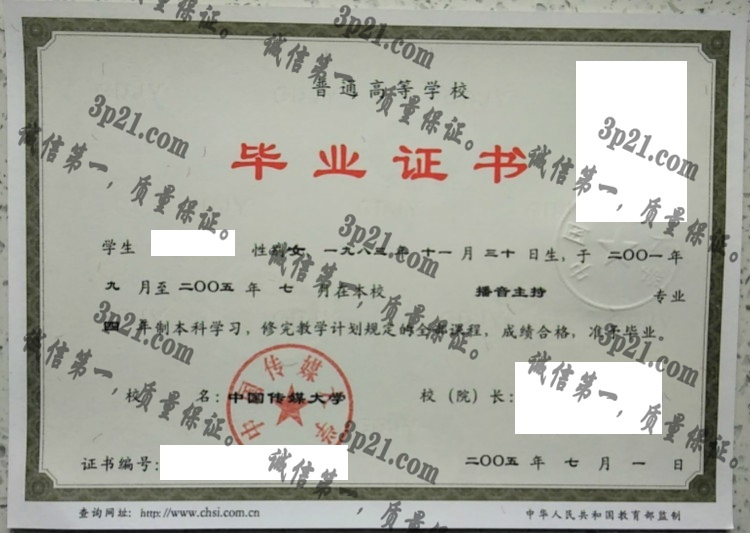 普通高等学校
毕业证书
学生 性别 女 一九八三年 十一月 三十日生，于 二〇〇一年
九 月至 二〇〇五 年 七 月在本校 播音主持 专业
四 年制本科学习，修完教学计划规定的全部课程，成绩合格，准予毕业。
校 名：中国传媒大学 校（院）长：
证书编号： 二〇〇五 年 七 月 一 日
查询网址：http://www.chsi.com.cn 中华人民共和国教育部监制
中国传媒大学
3p21.com
诚信第一，质量保证。
3p21.com
诚信第一，质量保证。
3p21.com
诚信第一，质量保证。
3p21.com
诚信第一，质量保证。
3p21.com
诚信第一，质量保证。
3p21.com
诚信第一，质量保证。
3p21.com
诚信第一，质量保证。
3p21.com
诚信第一，质量保证。
3p21.com
诚信第一，质量保证。